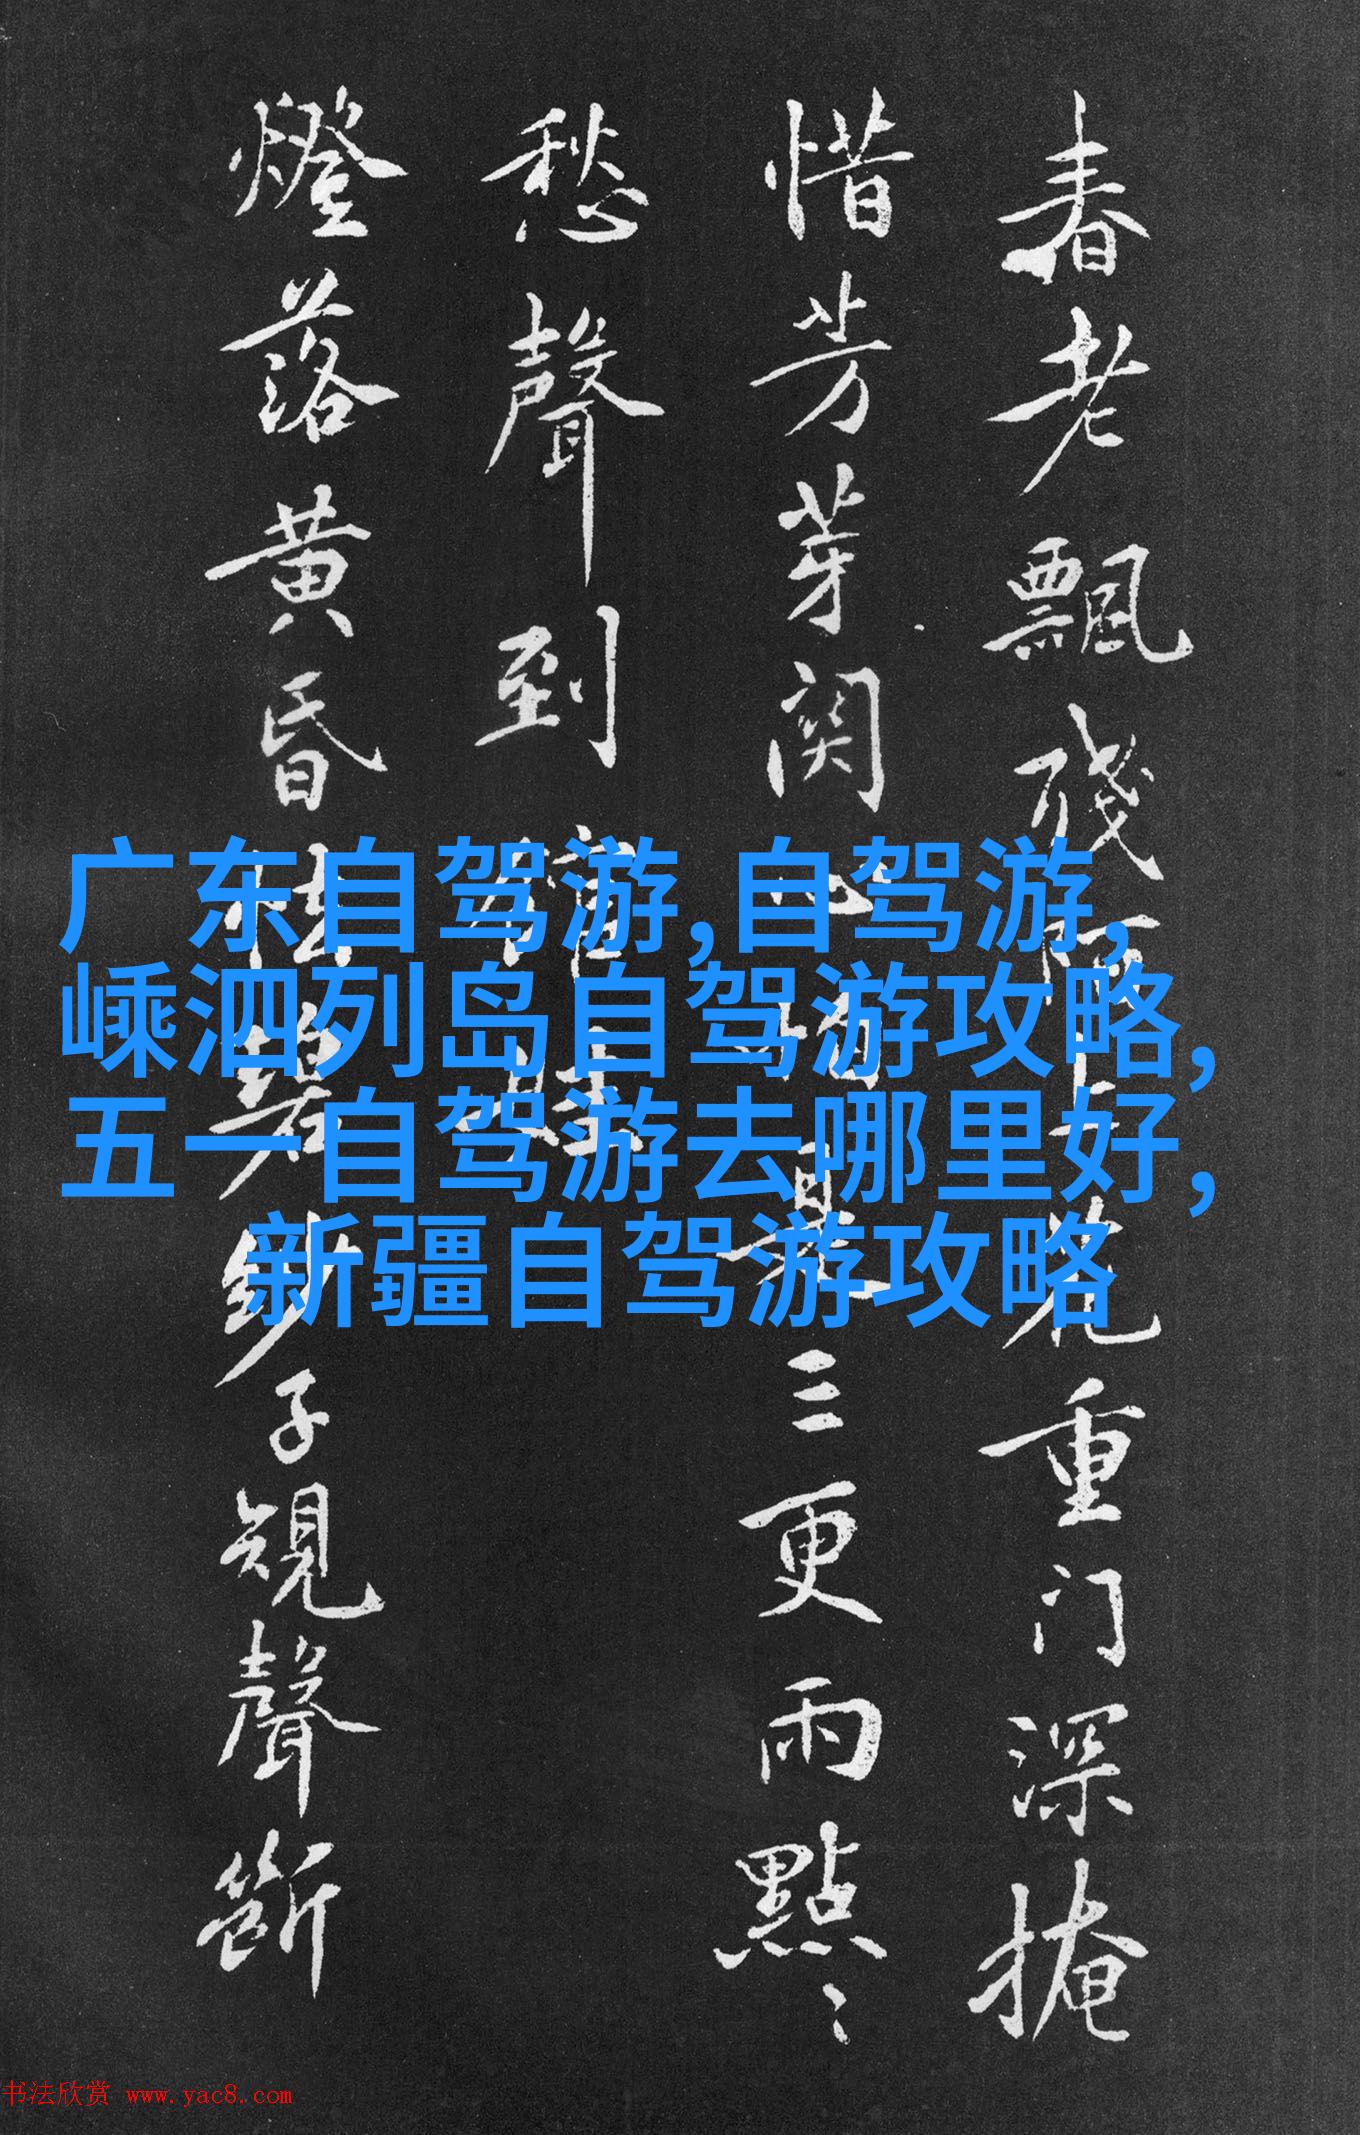 春老飄殘
重门深掩
惜芳芽関
三更雨點〻
愁聲到
燈落黄昏
子規聲斷
广东自驾游,自驾游,
嵊泗列岛自驾游攻略,
五一自驾游去哪里好,
新疆自驾游攻略
书法欣赏 www.yac8.com